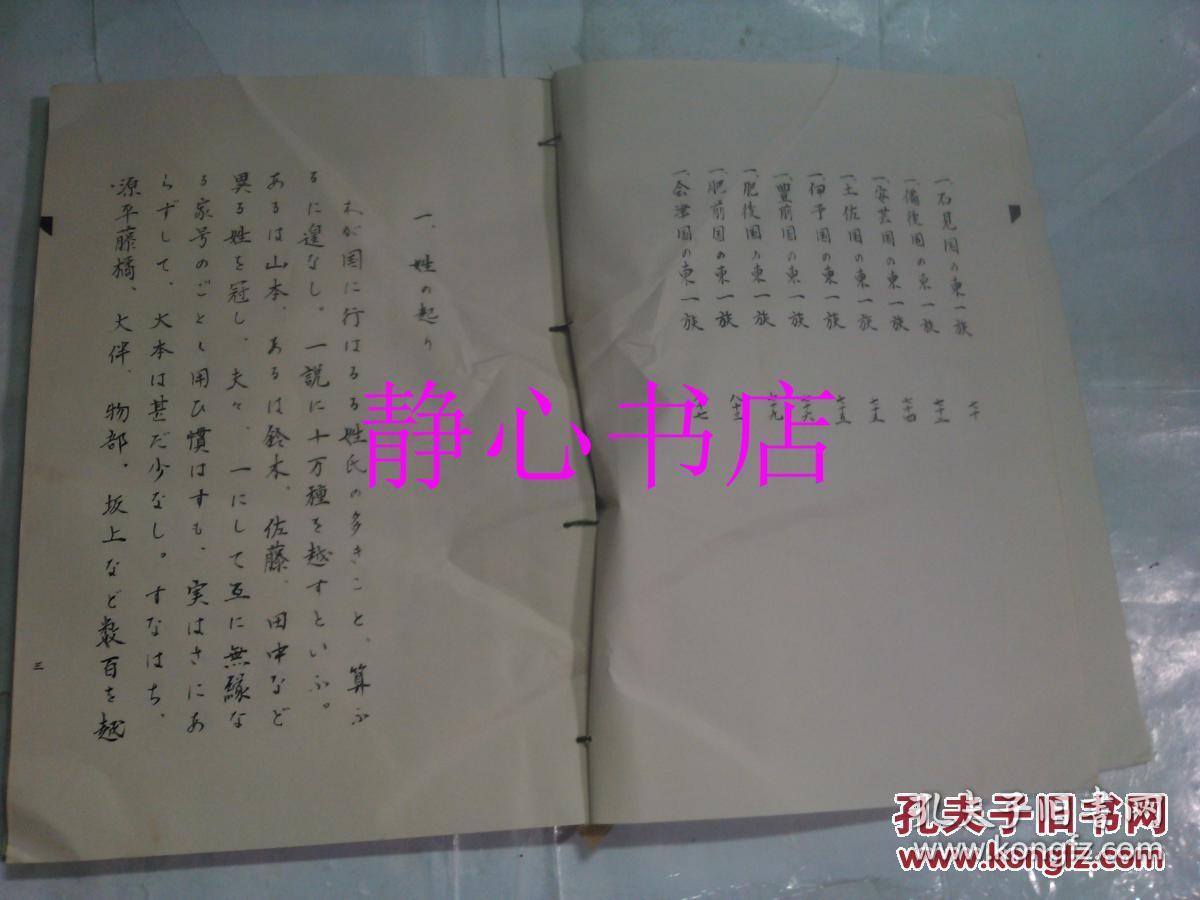 一、石見国の東一族 七十
一、備後国の東一族 七十二
一、安芸国の東一族 七十四
一、土佐国の東一族 七十五
一、伊予国の東一族 七十五
一、豊前国の東一族 七十六
一、肥後国の東一族 七十九
一、肥前国の東一族 八十三
一、会津国の東一族
一、姓の起り
わが国に行はるる姓氏の多きこと、算ふ
るに遑なし。一説に十万種を越すといふ。
あるは山本、あるは鈴木、佐藤、田中など
異る姓を冠し、夫々、一にして互に無縁な
る家号のごとく用ひ慣はすも、実はさにあ
らずして、大本は甚だ少なし。すなはち、
源平藤橘、大伴、物部、坂上など数百を越
三
静心书店
孔夫子旧书网
www.kongfz.com